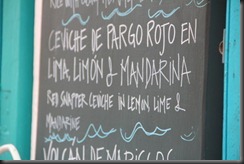 CEVICHE DE PARGO ROJO EN
LIMA, LIMÓN & MANDARINA
RED SNAPPER CEVICHE IN LEMON, LIME &
MANDARINE
VOLCAN DE MARISCOS